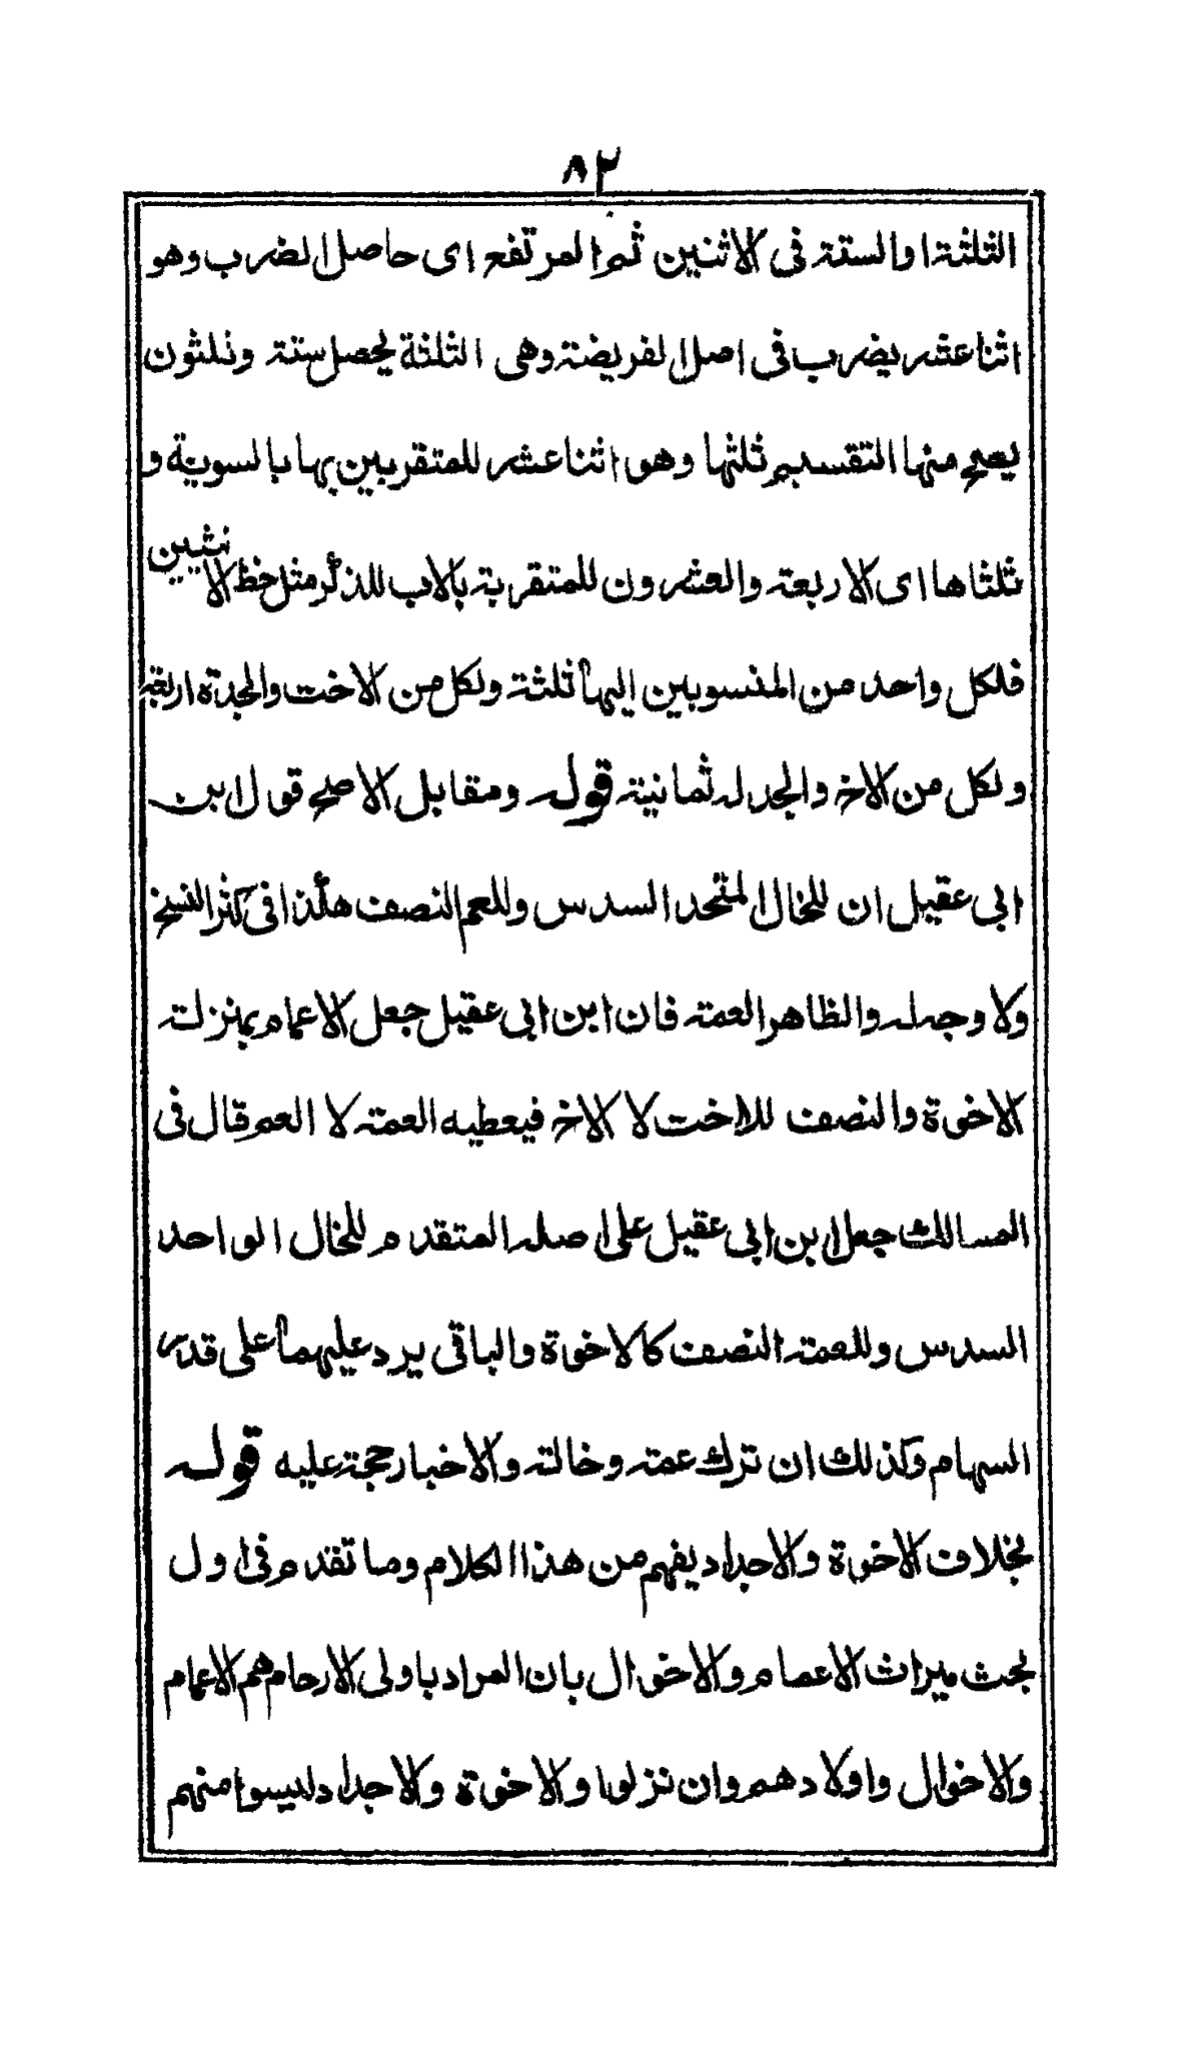 ٨٢
الثلثة او الستة فى الاثنين ثم المرتفع اى حاصل الضرب وهو
اثنا عشر يضرب فى اصل الفريضة وهى الثلثة يحصل ستة وثلثون
يصح منها التقسيم ثلثها وهو اثنا عشر للمتقربين بها بالسوية و
ثلثاها اى الاربعة والعشرون للمتقربة بالاب للذكر مثل حظ الانثيين
فلكل واحد من المنسوبين اليها ثلثة ولكل من الاخت والجدة اربعة
ولكل من الاخ والجد له ثمانية قوله ومقابل الاصح قول ابن
ابى عقيل ان للخال المتحد السدس وللعم النصف هكذا فى كثر النسخ
ولا وجه له والظاهر العمة فان ابن ابى عقيل جعل الاعمام بمنزلة
الاخوة والنصف للاخت لا الاخ فيعطيه العمة لا العم قال فى
المسالك جعل ابن ابى عقيل على اصله المتقدم للخال الواحد
السدس وللعمة النصف كالاخوة والباقى يرد عليهما على قدر
السهام وكذلك ان ترك عمة وخالة والاخبار حجة عليه قوله
بخلاف الاخوة والاجداد يفهم من هذا الكلام وما تقدم فى اول
بحث ميراث الاعمام والاخوال بان المراد باولى الارحام هم الاعمام
والاخوال واولادهم وان نزلوا والاخوة والاجداد ليسوا منهم